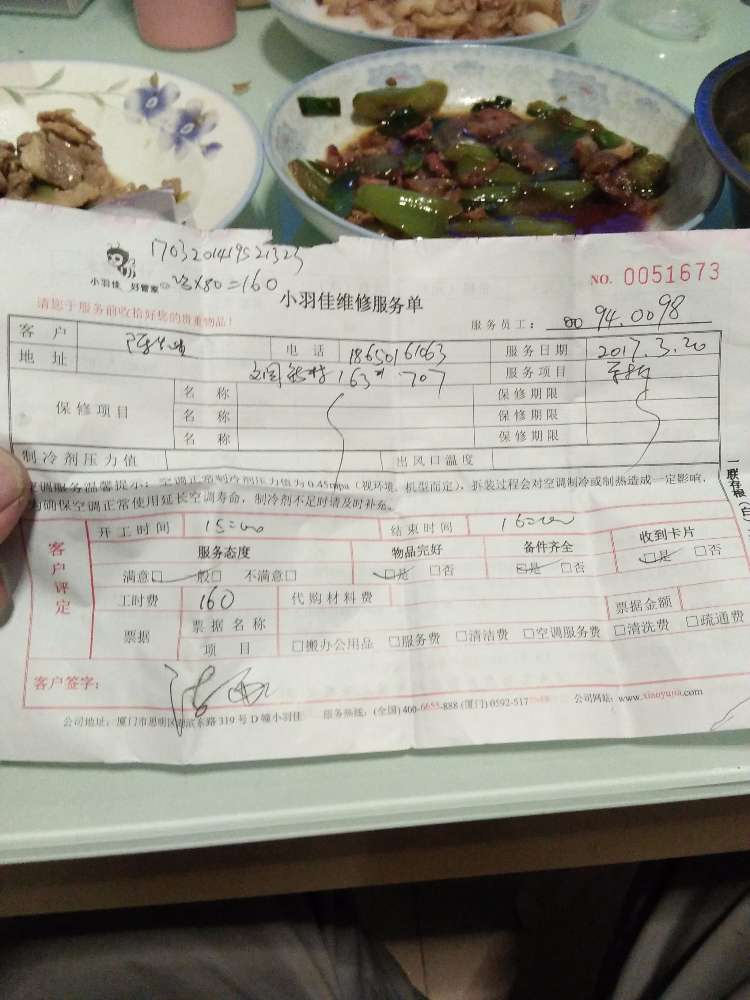 17032014195213​23
小羽佳 好管家 ×80=160
NO. 0051673
小羽佳维修服务单
请您于服务前收拾好您的贵重物品!
服务员工: 0094.0098
客户 电话 18650161063 服务日期 2017.3.20
地址 163 707 服务项目
保修项目 名称 保修期限
名称 保修期限
名称 保修期限
制冷剂压力值 出风口温度
空调服务温馨提示:空调正常制冷剂压力值为0.45mpa(视环境、机型而定),拆装过程会对空调制冷或制热造成一定影响,
为确保空调正常使用延长空调寿命,制冷剂不足时请及时补充。
一联存根(白
客户评定
开工时间 15:00 结束时间 16:00
服务态度 物品完好 备件齐全 收到卡片
满意□ 一般□ 不满意□ □是 □否 □是 □否 □是 □否
工时费 160 代购材料费
票据 票据名称 票据金额
项目 □搬办公用品 □服务费 □清洁费 □空调服务费 □清洗费 □疏通费
客户签字:
公司地址:厦门市思明区湖滨东路319号D幢小羽佳 服务热线:(全国)400-6655-888 (厦门)0592-517 公司网站:www.xiaoyujia.com